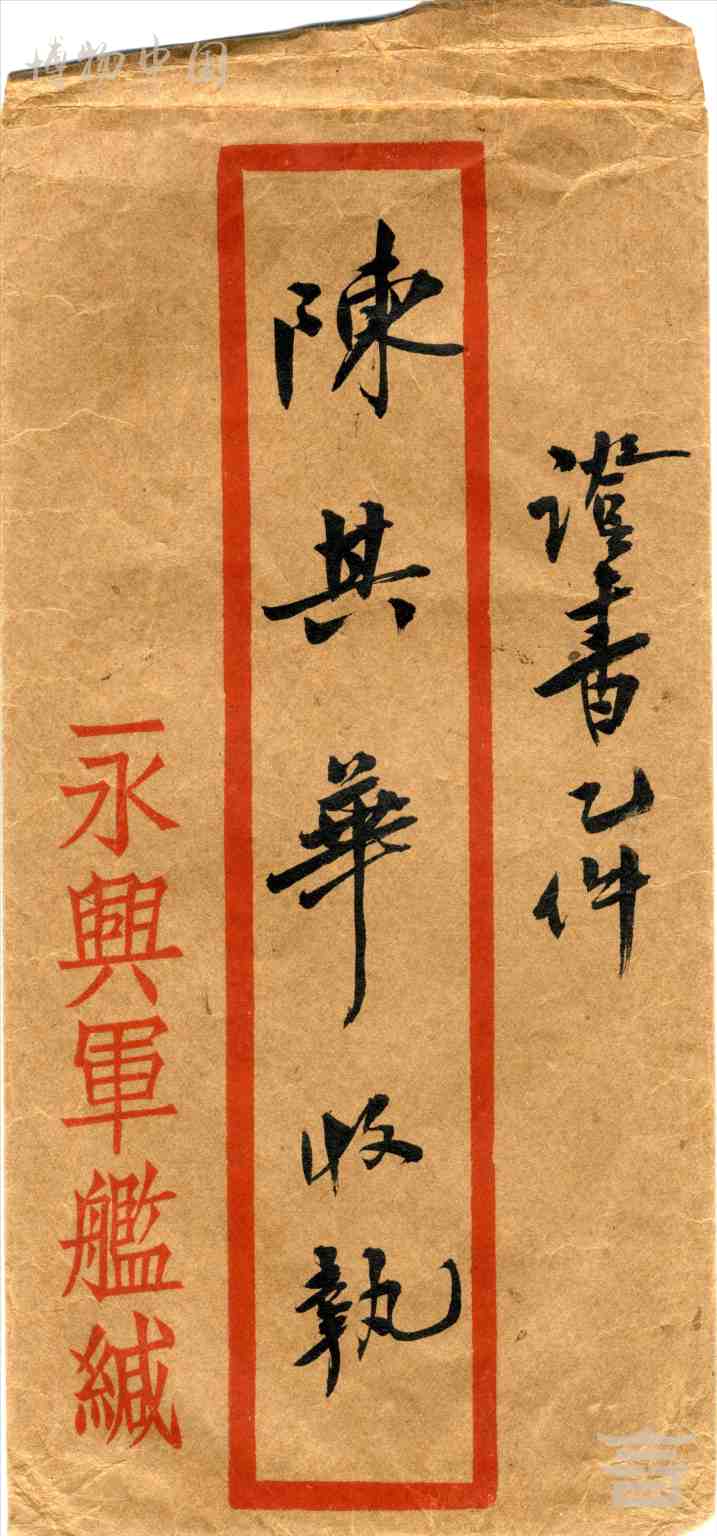 博物中国
證書乙件
陳其華收執
永興軍艦緘